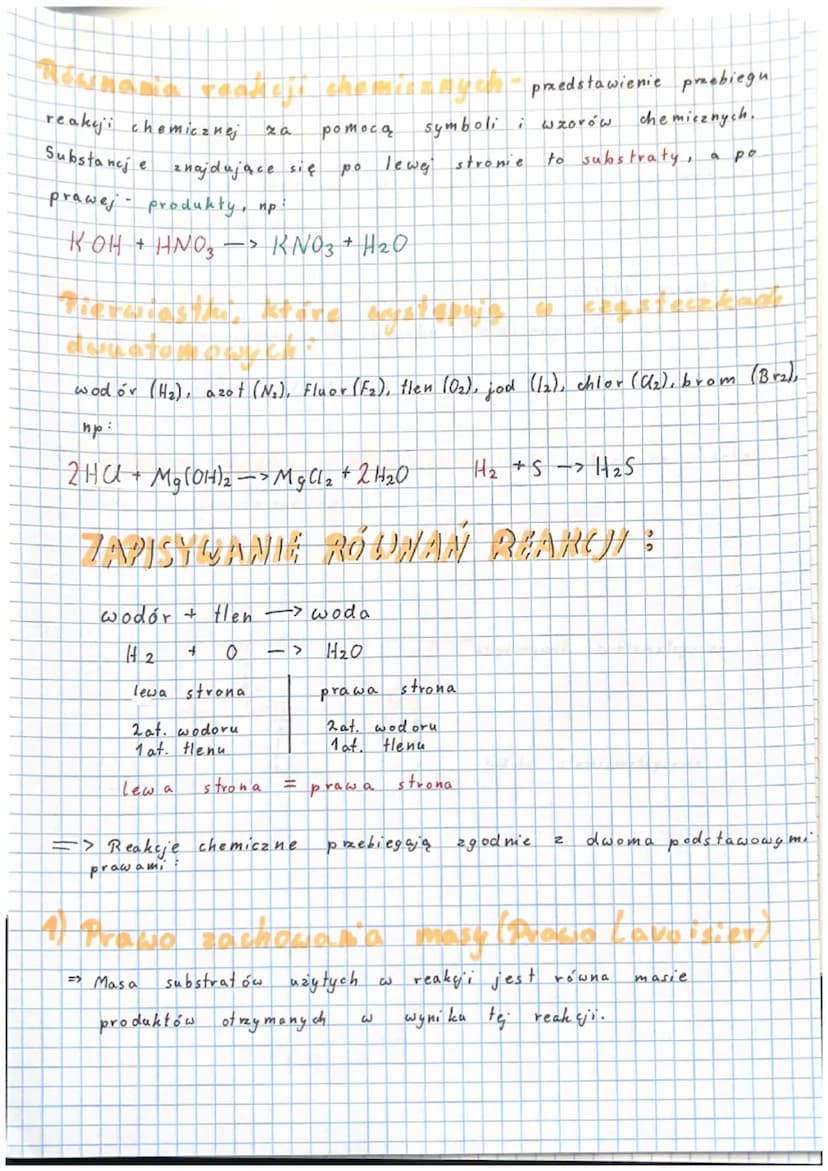 Równania reakcji chemicznych - przedstawienie przebiegu
reakcji chemicznej za pomocą symboli i wzorów chemicznych.
Substancje znajdujące się po lewej stronie to substraty, a po
prawej - produkty, np:
KOH + HNO₃ —> KNO₃ + H₂O
Pierwiastki, które występują w cząsteczkach
dwuatomowych:
wodór (H₂), azot (N₂), Fluor (F₂), tlen (O₂), jod (I₂), chlor (Cl₂), brom (Br₂),
np:
2HCl + Mg(OH)₂ —> MgCl₂ + 2H₂O H₂ + S —> H₂S
ZAPISYWANIE RÓWNAŃ REAKCJI :
wodór + tlen —> woda
H₂ + O —> H₂O
lewa strona | prawa strona
2at. wodoru | 2at. wodoru
1at. tlenu | 1at. tlenu
lewa strona = prawa strona
=> Reakcje chemiczne przebiegają zgodnie z dwoma podstawowymi
prawami:
1) Prawo zachowania masy (Prawo Lavoisier)
=> Masa substratów użytych w reakcji jest równa masie
produktów otrzymanych w wyniku tej reakcji.